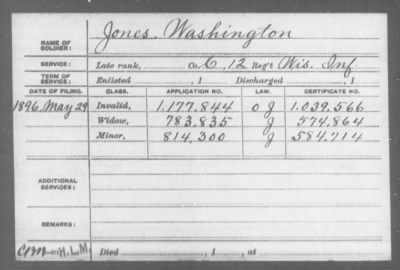 NAME OF SOLDIER: Jones, Washington
SERVICE: Late rank, Co. C, 12 Reg't Wis. Inf.
TERM OF SERVICE: Enlisted , 1 Discharged , 1
DATE OF FILING. CLASS. APPLICATION NO. LAW. CERTIFICATE NO.
1896, May 29 Invalid, 1.177.844 O J 1.039.566
Widow, 783,835 J 574,864
Minor, 814,300 J 584,714
ADDITIONAL SERVICES:
REMARKS:
H.L.M. Died , 1 , at